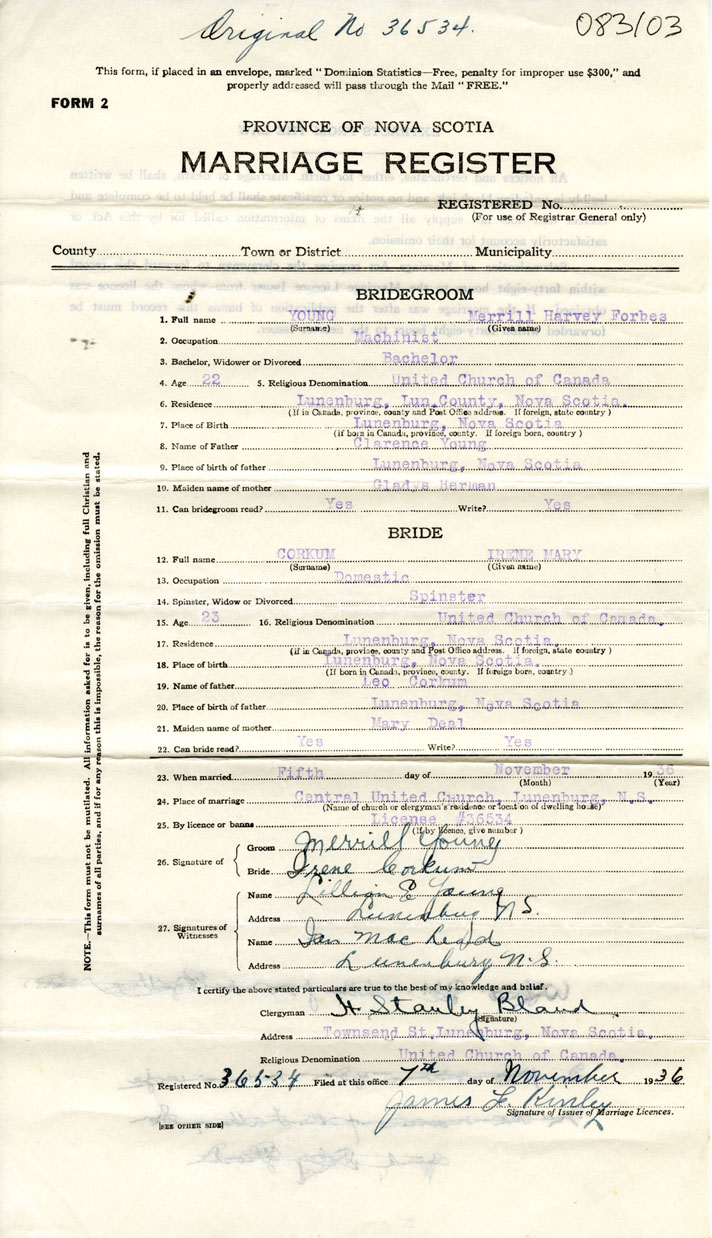 Original No 36534.
083/03
This form, if placed in an envelope, marked "Dominion Statistics—Free, penalty for improper use $300," and
properly addressed will pass through the Mail "FREE."
FORM 2
PROVINCE OF NOVA SCOTIA
MARRIAGE REGISTER
REGISTERED No.
(For use of Registrar General only)
County Town or District Municipality
BRIDEGROOM
1. Full name YOUNG Merrill Harvey Forbes
(Surname) (Given name)
2. Occupation Machinist
3. Bachelor, Widower or Divorced Bachelor
4. Age 22 5. Religious Denomination United Church of Canada
6. Residence Lunenburg, Lun.County, Nova Scotia.
(If in Canada, province, county and Post Office address. If foreign, state country)
7. Place of Birth Lunenburg, Nova Scotia
(If born in Canada, province, county. If foreign born, country)
8. Name of Father Clarence Young
9. Place of birth of father Lunenburg, Nova Scotia
10. Maiden name of mother Gladys Herman
11. Can bridegroom read? Yes Write? Yes
BRIDE
12. Full name CORKUM IRENE MARY
(Surname) (Given name)
13. Occupation Domestic
14. Spinster, Widow or Divorced Spinster
15. Age 23 16. Religious Denomination United Church of Canada.
17. Residence Lunenburg, Nova Scotia.
(if in Canada, province, county and Post Office address. If foreign, state country)
18. Place of birth Lunenburg, Nova Scotia.
(If born in Canada, province, county. If foreign born, country)
19. Name of father Leo Corkum
20. Place of birth of father Lunenburg, Nova Scotia
21. Maiden name of mother Mary Deal
22. Can bride read? Yes Write? Yes
23. When married Fifth day of November 1936
(Month) (Year)
24. Place of marriage Central United Church, Lunenburg, N.S.
(Name of church or clergyman's residence or location of dwelling house)
25. By licence or banns License #36534
(If by licence, give number)
26. Signature of Groom Merrill Young
Bride Irene Corkum
27. Signatures of Witnesses Name Lillian Young
Address Lunenburg N S.
Name Ian Mac Leod
Address Lunenburg N.S.
I certify the above stated particulars are true to the best of my knowledge and belief.
Clergyman H Stanley Bland
(Signature)
Address Townsend St.Lunenburg, Nova Scotia.
Religious Denomination United Church of Canada.
Registered No. 36534 Filed at this office 7th day of November 1936
James Kinley
Signature of Issuer of Marriage Licences.
[SEE OTHER SIDE]
NOTE.—This form must not be mutilated. All information asked for is to be given, including full Christian and
surnames of all parties, and if for any reason this is impossible, the reason for the omission must be stated.